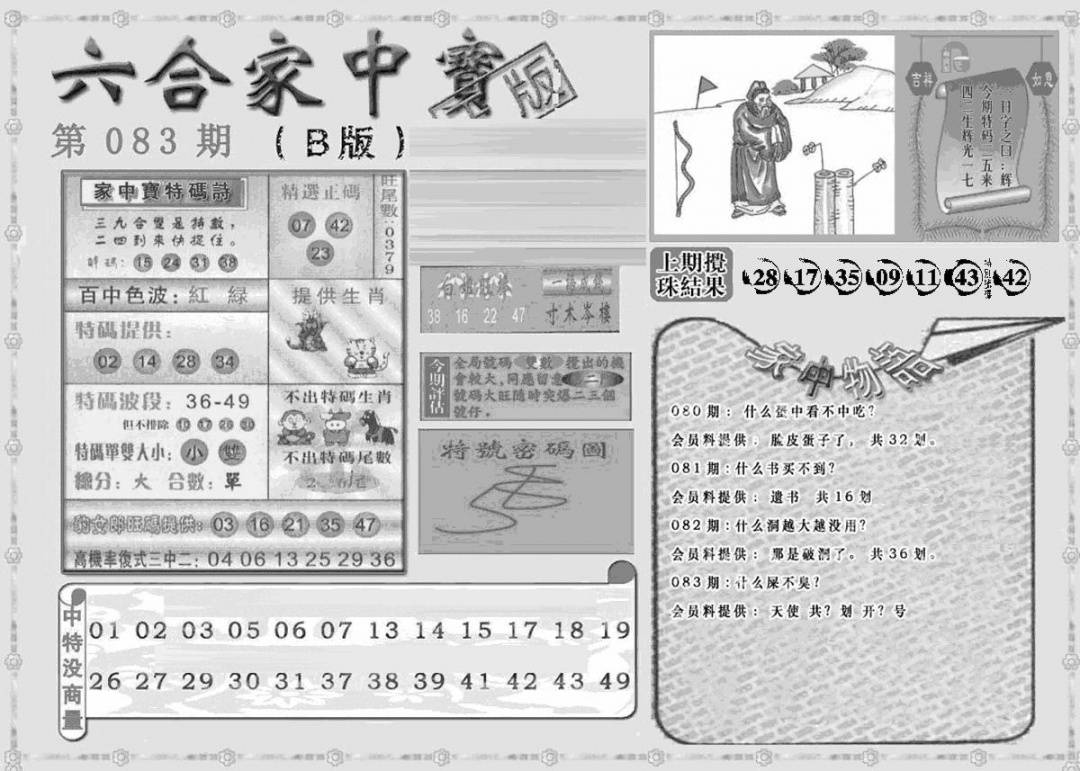 六合家中寶
版
第 083 期 （ B 版 ）
家中寶特碼詩
三九合盟是特數，
二四到來快捉住。
15 24 31 38
精選正碼
07 42
23
旺尾數:0379
百中色波: 紅 綠
特碼提供:
02 14 28 34
提供生肖
特碼波段: 36-49
但不排除
特碼單雙大小: 小 雙
總分: 大 合數: 單
不出特碼生肖
不出特碼尾數
女郎旺碼提供: 03 16 21 35 47
高機率復式三中二: 04 06 13 25 29 36
38 16 22 47
寸木岑樓
今期評估
全局號碼 雙數 攪出的機
會較大,同應留意 二
號碼大旺隨時突爆二三個
號仔,
特號密碼圖
吉祥
如意
一日字之曰:辉
今期特码二五来
四二生辉光一七
上期攪
珠結果
28 17 35 09 11 43 特别號碼 42
家中物語
080 期: 什么蛋中看不中吃?
会员料提供: 脸皮蛋子了, 共 32 划。
081 期:什么书买不到?
会员料提供: 遗书 共 16 划
082 期:什么洞越大越没用?
会员料提供: 那是破洞了。 共 36 划。
083 期:什么屎不臭?
会员料提供: 天使 共? 划 开? 号
中特没商量
01 02 03 05 06 07 13 14 15 17 18 19
26 27 29 30 31 37 38 39 41 42 43 49